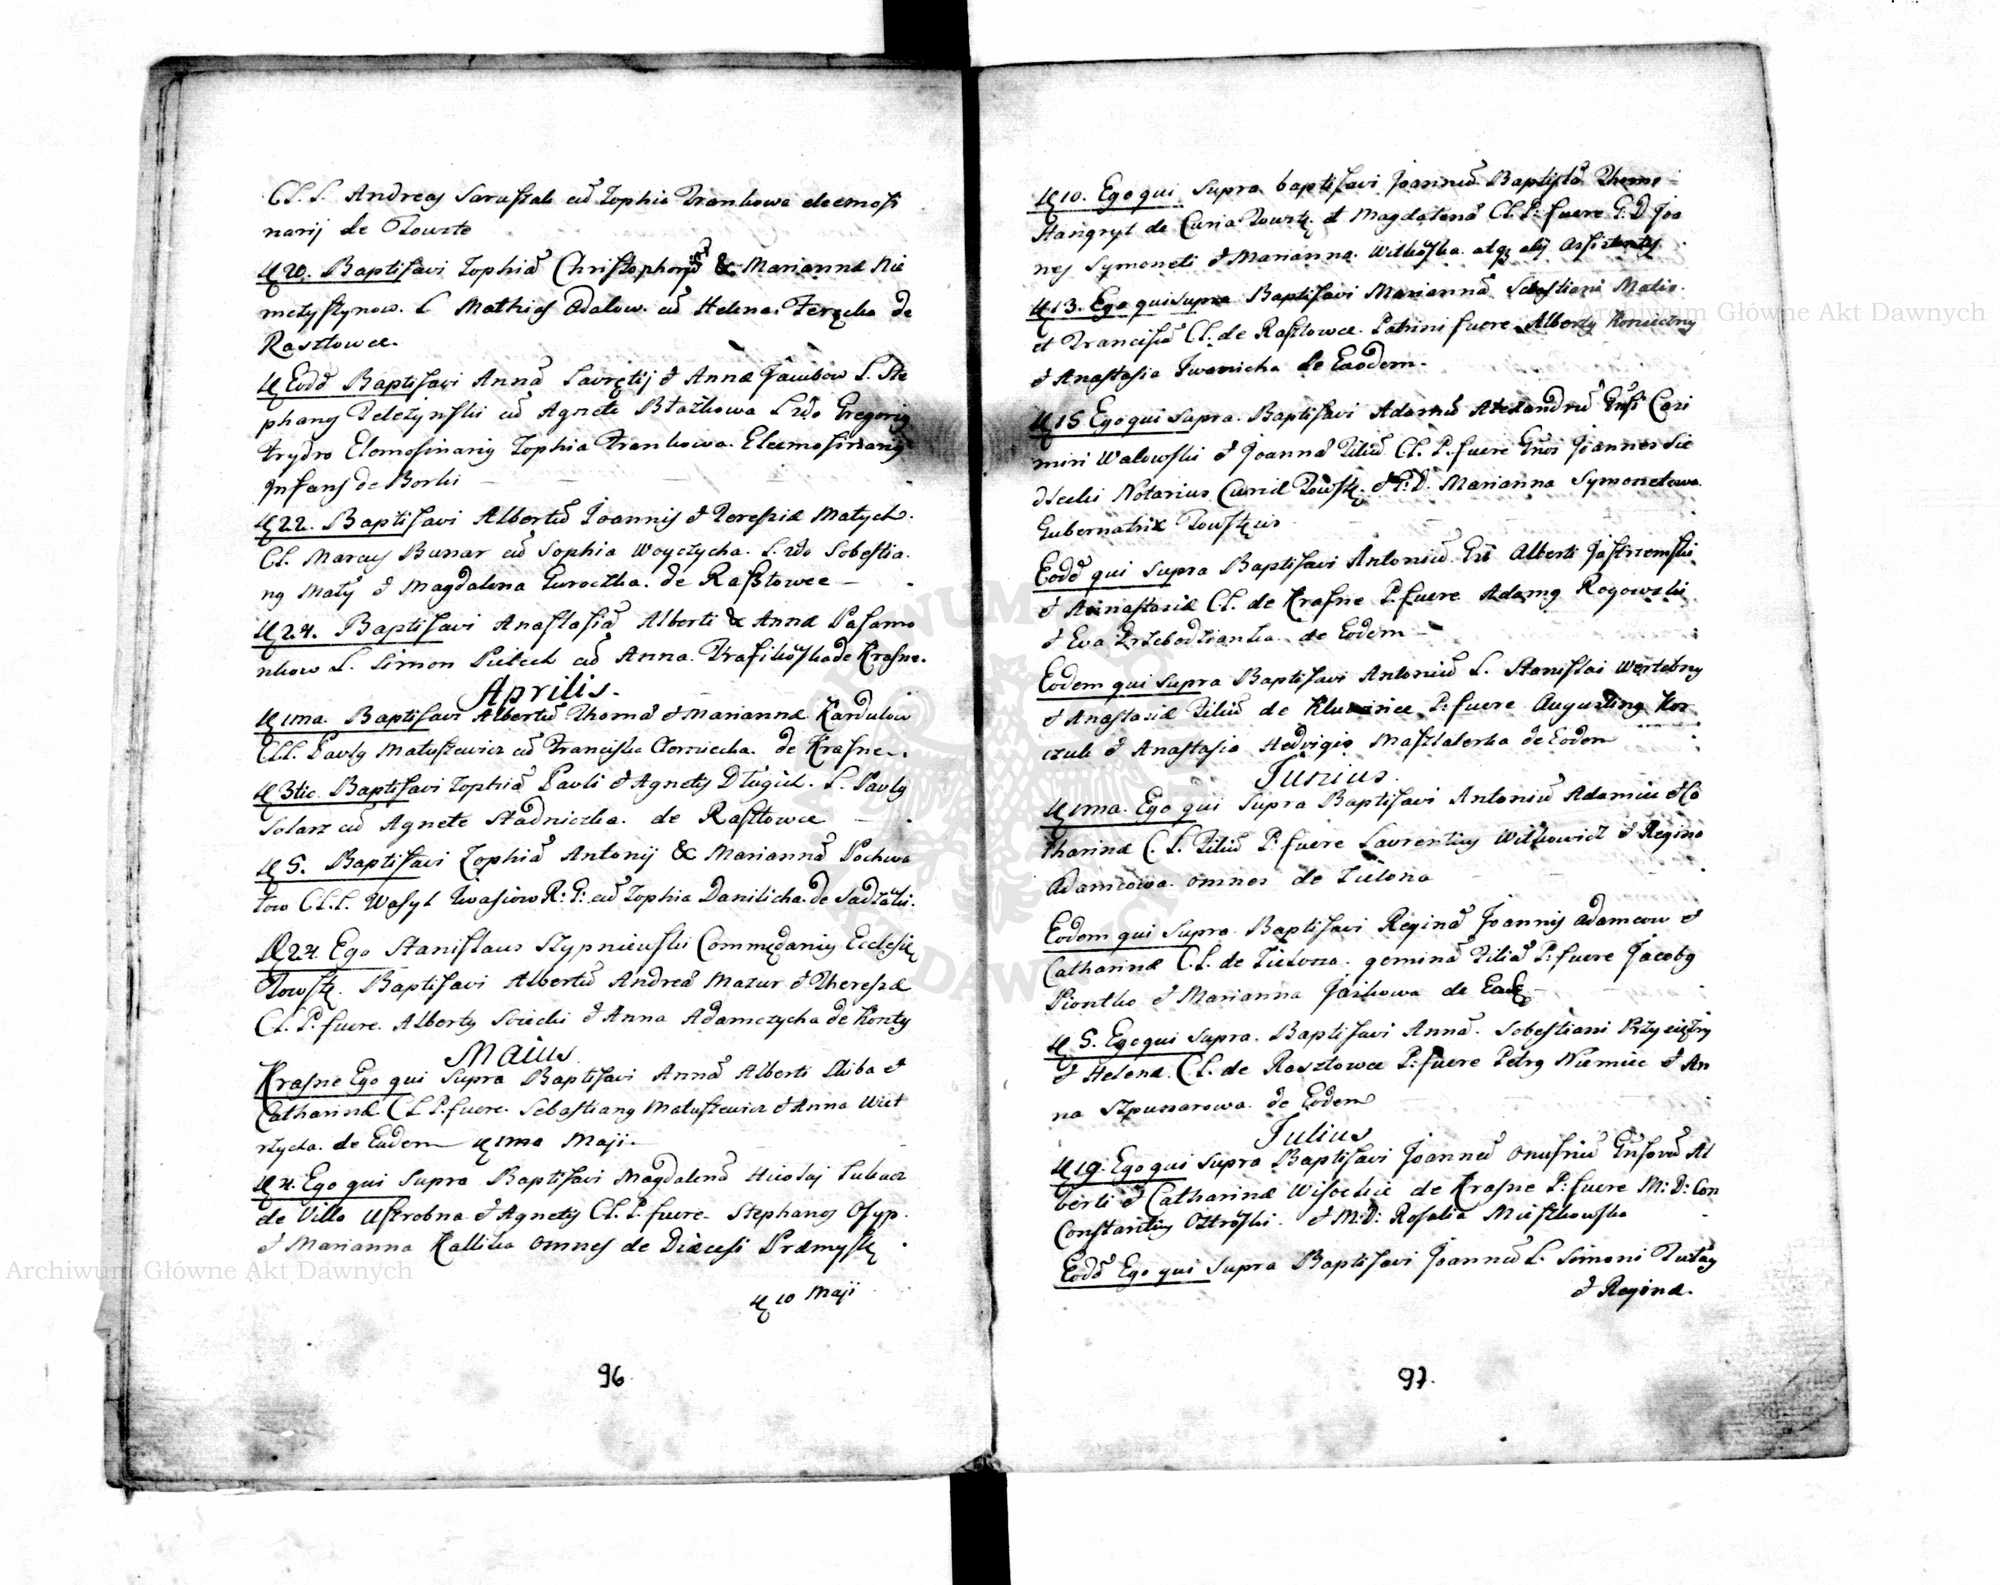 CL. L. Andreas Saruszak cū Zophia Frankowa eleemosi
narij de Towste
20. Baptisavi Zophiā Christophori & Mariannæ Nie
metysztynow. L Mathias Adalow. cū Helena Feręcka de
Rasztowce.
Eodē Baptisavi Annā Laurętij & Annæ Jacubow L. Ste
phang Zelezynski cū Agnete Btażkowa L 2do Gregorig
Frydro Elemosinarig Zophia Frankowa. Eleemosinarig
Infans de Borki
22. Baptisavi Albertū Joannis & Teresiæ Matych.
CL. Marcus Bunar cū Sophia Woyczycha. L. 2do Sebestia.
ng Maty & Magdalena Guroczka. de Rasztowce —
24. Baptisavi Anastasiā Alberti & Annæ Pasamo
nkow L. Simon Piitech cū Anna. Trafikowska de Krasne.
Aprilis.
1ma. Baptisavi Albertū Thomæ & Mariannæ Kardulow
CLL. Pavlg Matuszewicz cū Franciszka Czerniecka. de Krasne.
3tio. Baptisavi Zophiā Pauli & Agnetis Długich. L. Pavlg
Solarz cū Agnete Stadniczka. de Rasztowce —
5. Baptisavi Zophiā Antonij & Mariannæ Pochwa
tow CLL. Wasyl Iwasiow R: G: cū Zophia Danilicha de Sadzaki.
24. Ego Stanislaus Szypnieuski Commędarius Ecclesię
Towstę. Baptisavi Albertū Andreæ Mazur & Theresæ
CL. P. fuere. Albertg Soiecki & Anna Adamczycha de Konty
Maius
Krasne Ego qui Supra Baptisavi Annā Alberti Skiba &
Catharinæ CL P. fuere. Sebastiang Matuszewicz & Anna Wiet
rzycha. de Eadem 1ma Maji.
4. Ego qui Supra Baptisavi Magdalenā Nicolaj Lubacz
de Villa Ustrobna & Agnetis CL. P. fuere. Stephanos Osyp.
& Marianna Kallika omnes de Diæcesi Præmyslę
10 Maji
96
10. Ego qui Supra baptisavi Joannē Baptistā Thome
Hangryt de Curia Towstę. et Magdalenæ CL. P: fuere G. D Joa
nes Symoneti & Marianna. Witkowska. atq alij Assistentes
13. Ego qui Supra Baptisavi Mariannā Sebastiani Matis.
et Franciscæ CL. de Rasztowce. Patrini fuere. Albertg Konieczny
& Anastasia Iwanicha de Eaodem.
15 Ego qui Supra. Baptisavi Adamū Alexandrū Gnsi Cazi
miri Walowski & Joannæ Filiū CL. P. fuere Gnosi Joannes Sie
dlecki Notarius Curiæ Towstę. & P. D. Marianna Symonetowa
Gubernatrix Towstęcis
Eodē qui Supra Baptisavi Antoniū Gsi Alberti Jastrzemski
& Annastasiæ CL. de Krasne P. fuere Adamg Rogowski
& Eva Przebodzianka. de Eodem
Eodem qui Supra Baptisavi Antoniū L. Stanislai Wertebny
& Anastasiæ Filiū de Kluwince P: fuere Augusting Kor
czuk & Anastasia Hedvigis Masztalerka de Eodem
Junius.
1ma. Ego qui Supra Baptisavi Antoniū Adamiu & Ca
tharinæ C. L. Filiū P: fuere Laurentius Witkowicz & Regina
Adamcowa. omnes de Zielona
Eodem qui Supra. Baptisavi Reginā Joannis Adamcow &
Catharinæ C.L. de Zielona. geminā Filiā P: fuere Jacobg
Piontko & Marianna Jaikowa de Eadē
5. Ego qui Supra. Baptisavi Annā. Sebestiani Przycięzny
& Helenæ. C.L. de Rosztowce P: fuere Petrg Niemiec & An
na Szpunarowa. de Eodem
Julius
19. Ego qui Supra Baptisavi Joannē Onufriū Gnsorū Al
berti & Catharinæ Wisockie de Krasne P: fuere M: D: Con
Constantius Oztroski. & M: D: Rosalia Mieszkowska
Eodē Ego qui Supra Baptisavi Joannē L. Simoni Tutay
& Reginæ.
97.
Archiwum Główne Akt Dawnych
Archiwum Główne Akt Dawnych
ARCHIWUM GŁÓWNE AKT DAWNYCH